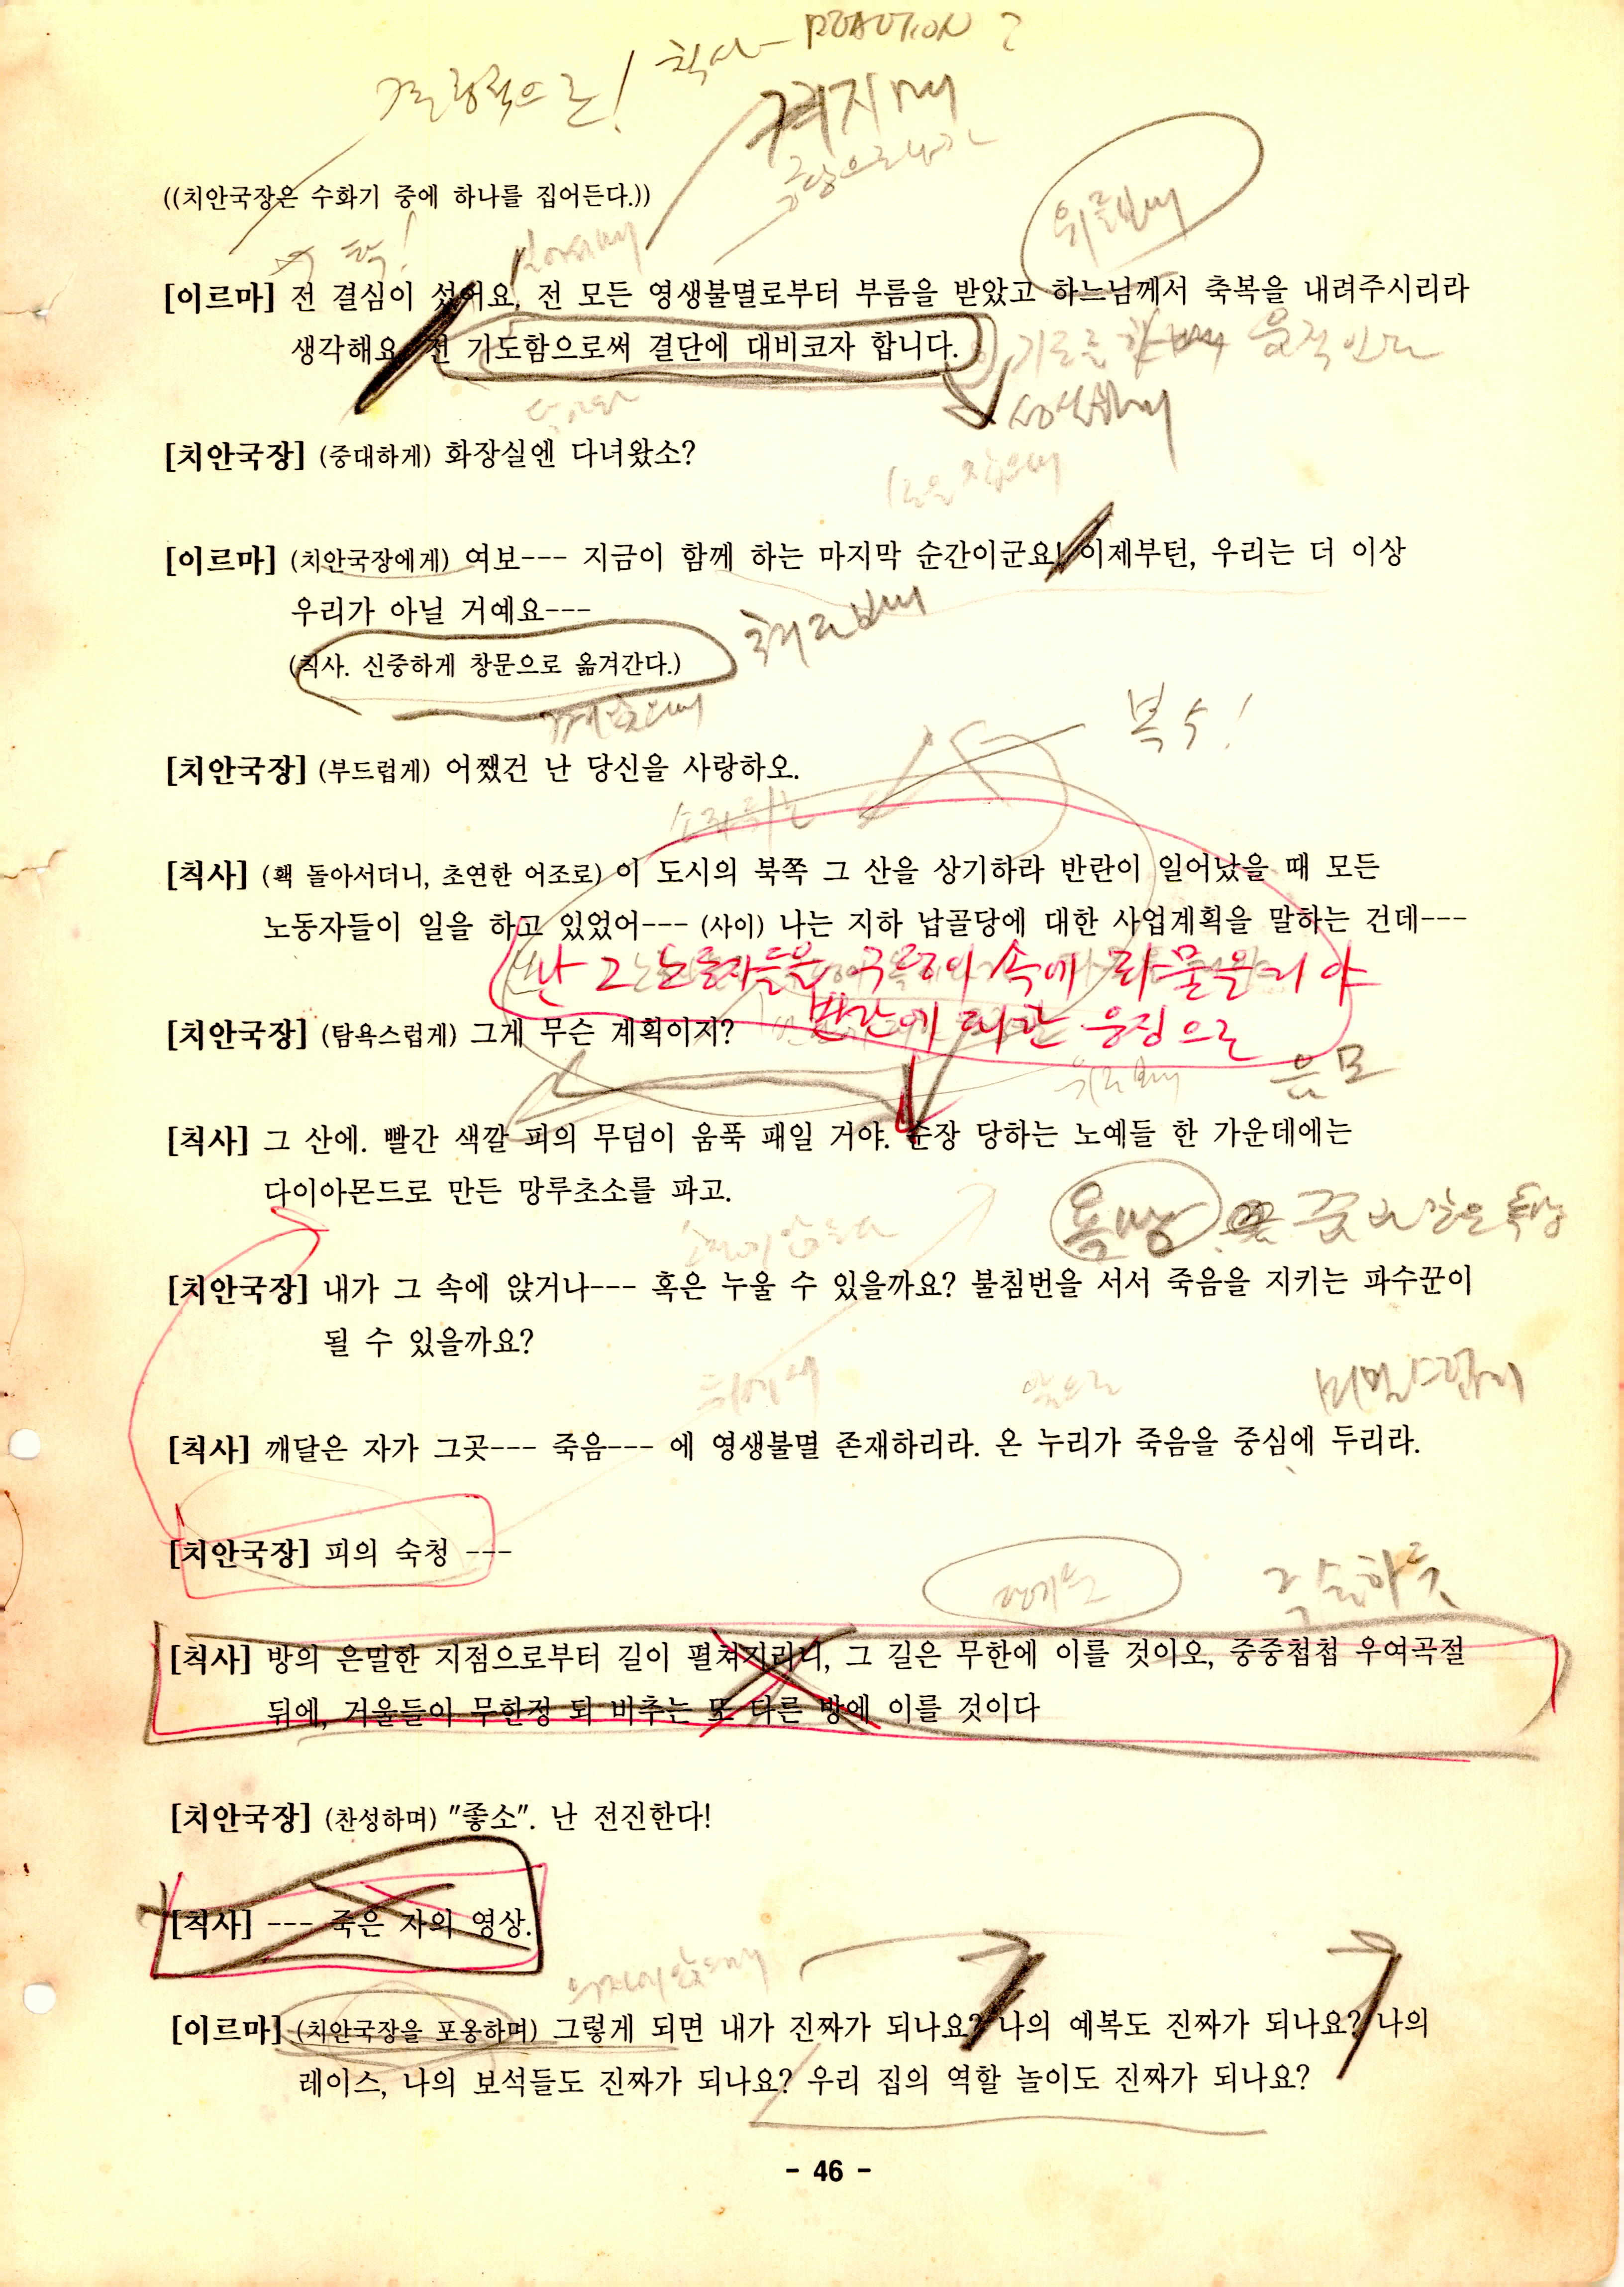 칙사 - REACTION ?
결정적으로!
((치안국장은 수화기 중에 하나를 집어든다.))
위를보며
[이르마] 전 결심이 섰어요, 전 모든 영생불멸로부터 부름을 받았고 하느님께서 축복을 내려주시리라
생각해요. 전 기도함으로써 결단에 대비코자 합니다.
[치안국장] (중대하게) 화장실엔 다녀왔소?
[이르마] (치안국장에게) 여보--- 지금이 함께 하는 마지막 순간이군요! 이제부턴, 우리는 더 이상
우리가 아닐 거예요---
(칙사. 신중하게 창문으로 옮겨간다.)
복수!
[치안국장] (부드럽게) 어쨌건 난 당신을 사랑하오.
[칙사] (홱 돌아서더니, 초연한 어조로) 이 도시의 북쪽 그 산을 상기하라 반란이 일어났을 때 모든
노동자들이 일을 하고 있었어--- (사이) 나는 지하 납골당에 대한 사업계획을 말하는 건데---
난 그 노동자들을 구렁이 속에 파묻을거야
반란에 대한 응징으로
[치안국장] (탐욕스럽게) 그게 무슨 계획이지?
음모
[칙사] 그 산에. 빨간 색깔 피의 무덤이 움푹 패일 거야. 순장 당하는 노예들 한 가운데에는
다이아몬드로 만든 망루초소를 파고.
욕망
[치안국장] 내가 그 속에 앉거나--- 혹은 누울 수 있을까요? 불침번을 서서 죽음을 지키는 파수꾼이
될 수 있을까요?
뒤에서 앞으로 비밀스럽게
[칙사] 깨달은 자가 그곳--- 죽음--- 에 영생불멸 존재하리라. 온 누리가 죽음을 중심에 두리라.
[치안국장] 피의 숙청 ---
[칙사] 방의 은밀한 지점으로부터 길이 펼쳐지리니, 그 길은 무한에 이를 것이오, 중중첩첩 우여곡절
뒤에, 거울들이 무한정 되 비추는 또 다른 방에 이를 것이다
[치안국장] (찬성하며) "좋소". 난 전진한다!
[칙사] --- 죽은 자의 영상.
의자에 앉으며
[이르마] (치안국장을 포옹하며) 그렇게 되면 내가 진짜가 되나요? 나의 예복도 진짜가 되나요? 나의
레이스, 나의 보석들도 진짜가 되나요? 우리 집의 역할 놀이도 진짜가 되나요?
- 46 -